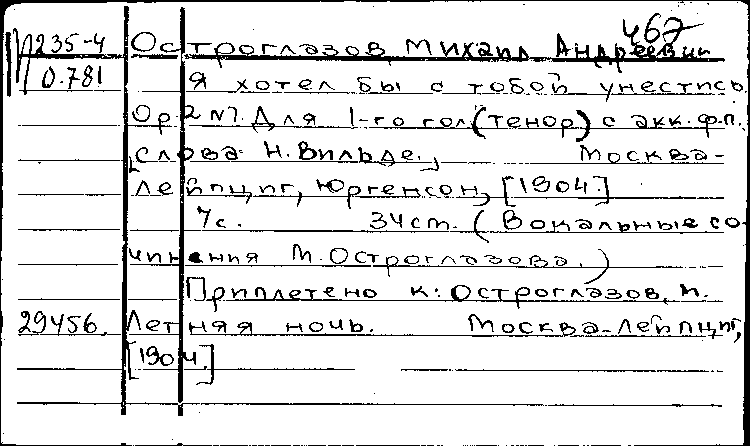 467
235-4 Остроглазов, Михаил Андреевич
0.781 Я хотел бы с тобой унестись.
Op.2 N1. Для 1-го гол(тенор) с акк. ф.п.
[слова Н. Вильде.] Москва-
Лейпциг, Юргенсон, [1904.]
7с. 34ст. (Вокальные со-
чинения М. Остроглазова.)
Приплетено к: Остроглазов, М.
29456. Летняя ночь. Москва-Лейпциг,
[1904.]